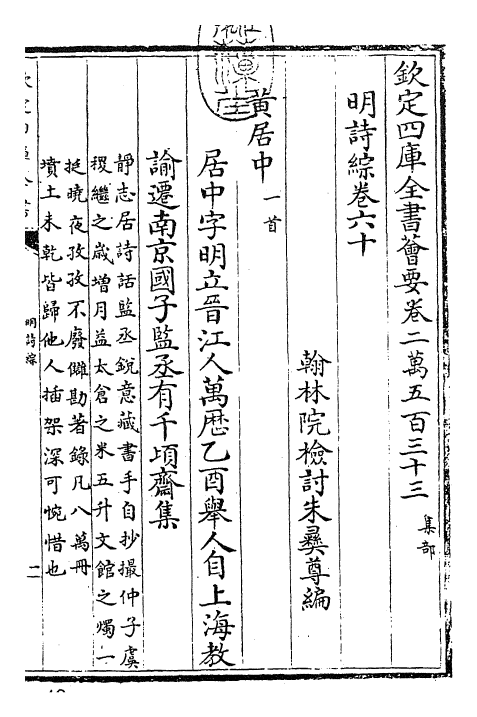 欽定四庫全書薈要卷二萬五百三十三 集部
明詩綜卷六十
翰林院檢討朱彝尊編
黃居中 一首
居中字明立晉江人萬歴乙酉舉人自上海教
諭遷南京國子監丞有千頃齋集
静志居詩話監丞銳意藏書手自抄撮仲子虞
稷繼之嵗增月益太倉之米五升文館之燭一
挺曉夜孜孜不廢讎勘著錄凡八萬冊
墳土未乾皆歸他人插架深可惋惜也
明詩綜
二